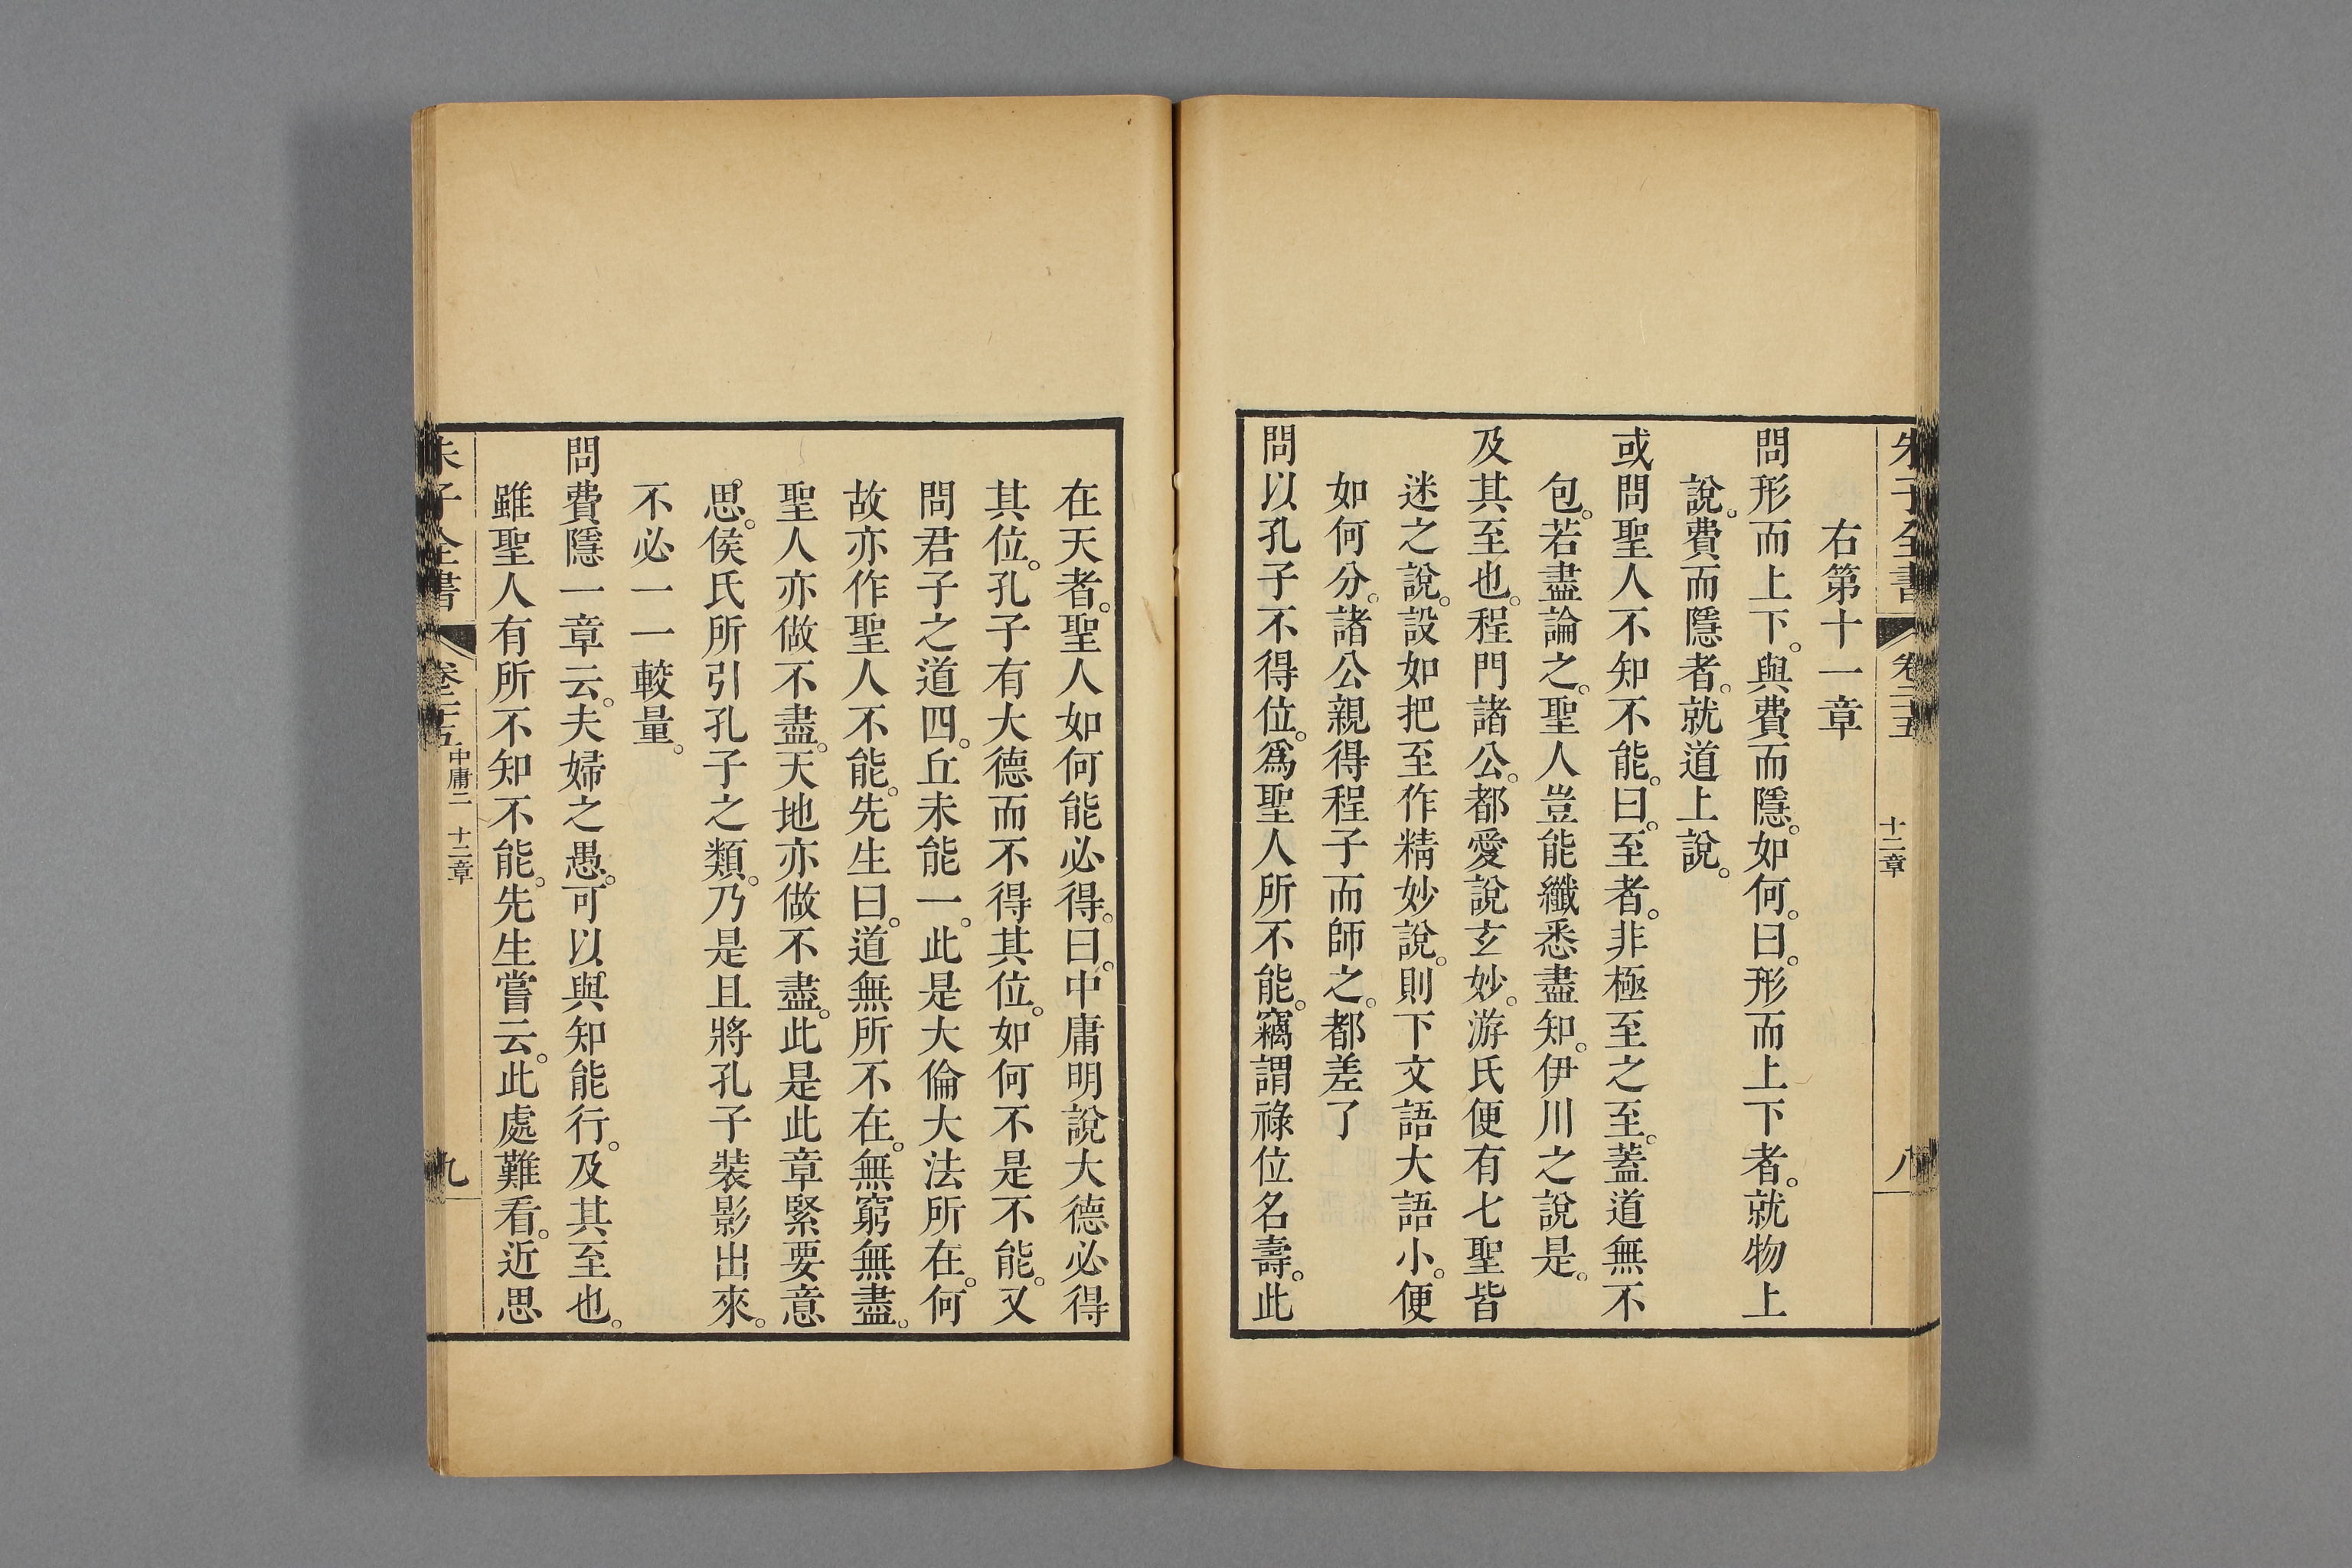 朱子全書 卷二十五 十二章 八
右第十一章
問形而上下。與費而隱。如何。曰。形而上下者。就物上
說。費而隱者。就道上說。
或問聖人不知不能。曰。至者。非極至之至。蓋道無不
包。若盡論之。聖人豈能纖悉盡知。伊川之說是。
及其至也。程門諸公。都愛說玄妙。游氏便有七聖皆
迷之說。設如把至作精妙說。則下文語大語小。便
如何分。諸公親得程子而師之。都差了
問以孔子不得位。爲聖人所不能。竊謂祿位名壽。此
在天者。聖人如何能必得。曰。中庸明說大德必得
其位。孔子有大德而不得其位。如何不是不能。又
問君子之道四。丘未能一。此是大倫大法所在。何
故亦作聖人不能。先生曰。道無所不在。無窮無盡。
聖人亦做不盡。天地亦做不盡。此是此章緊要意
思。侯氏所引孔子之類。乃是且將孔子裝影出來。
不必一一較量。
問費隱一章云。夫婦之愚。可以與知能行。及其至也。
雖聖人有所不知不能。先生嘗云。此處難看。近思
朱子全書 卷二十五 中庸二 十二章 九